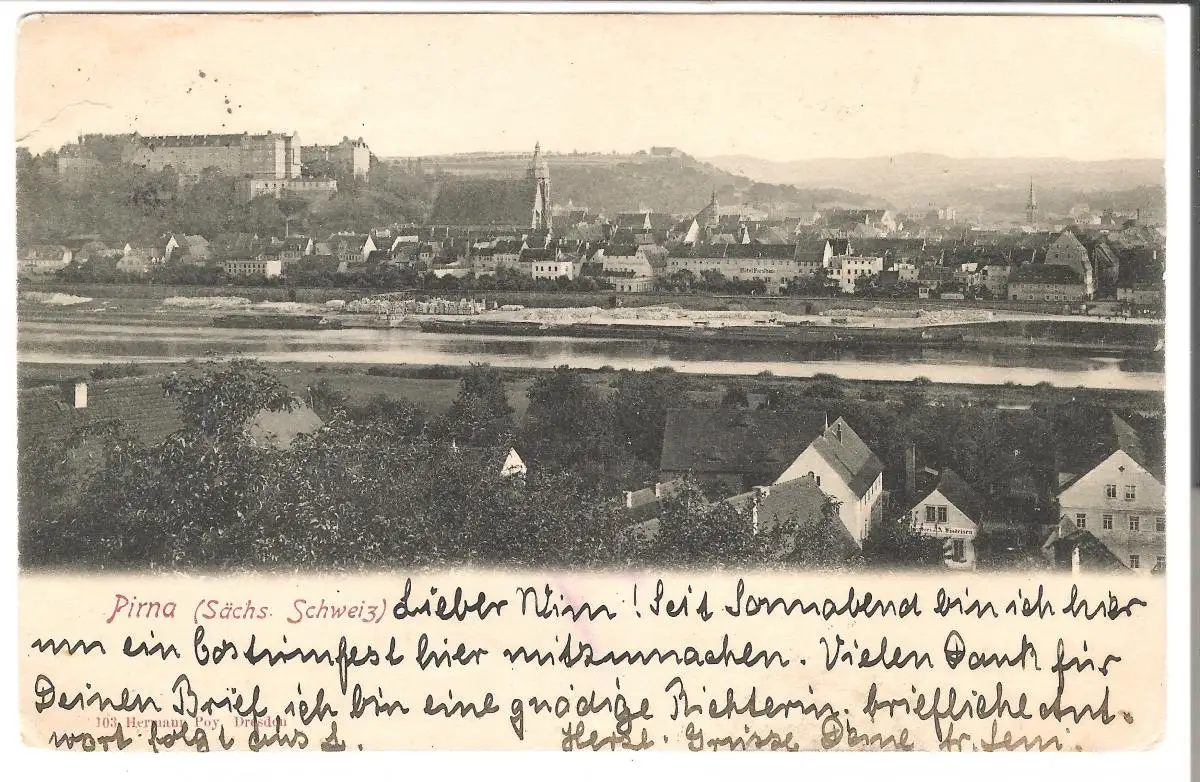 Hôtel Forsthaus
Pirna (Sächs. Schweiz) Lieber Wim! Seit Sonnabend bin ich hier
um ein Costümfest hier mitzumachen. Vielen Dank für
Deinen Brief, ich bin eine gnädige Richterin. briefliche Ant-
103 Hermann Poy, Dresden
wort folgt aus L. Herzl. Grüsse Deine tr.